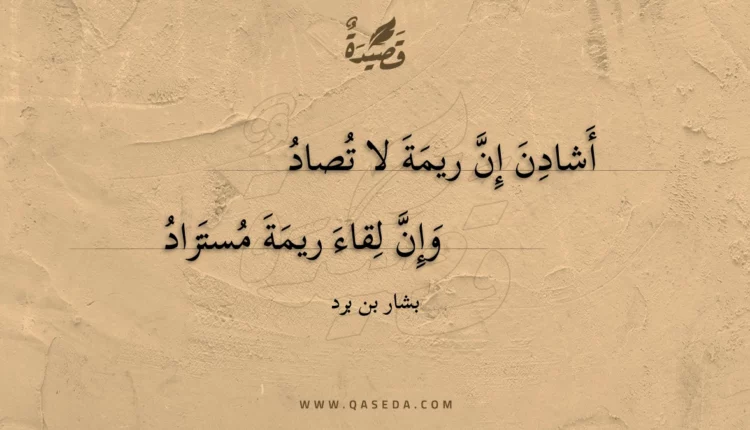 قَصِيدَةٌ
أَشادِنَ إِنَّ ريمَةَ لا تُصادُ
وَإِنَّ لِقاءَ ريمَةَ مُستَرادُ
بشار بن برد
WWW.QASEDA.COM